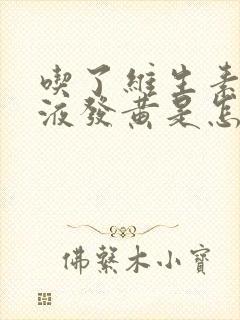 喫了維生素
液發黃是怎
佛系木小寶